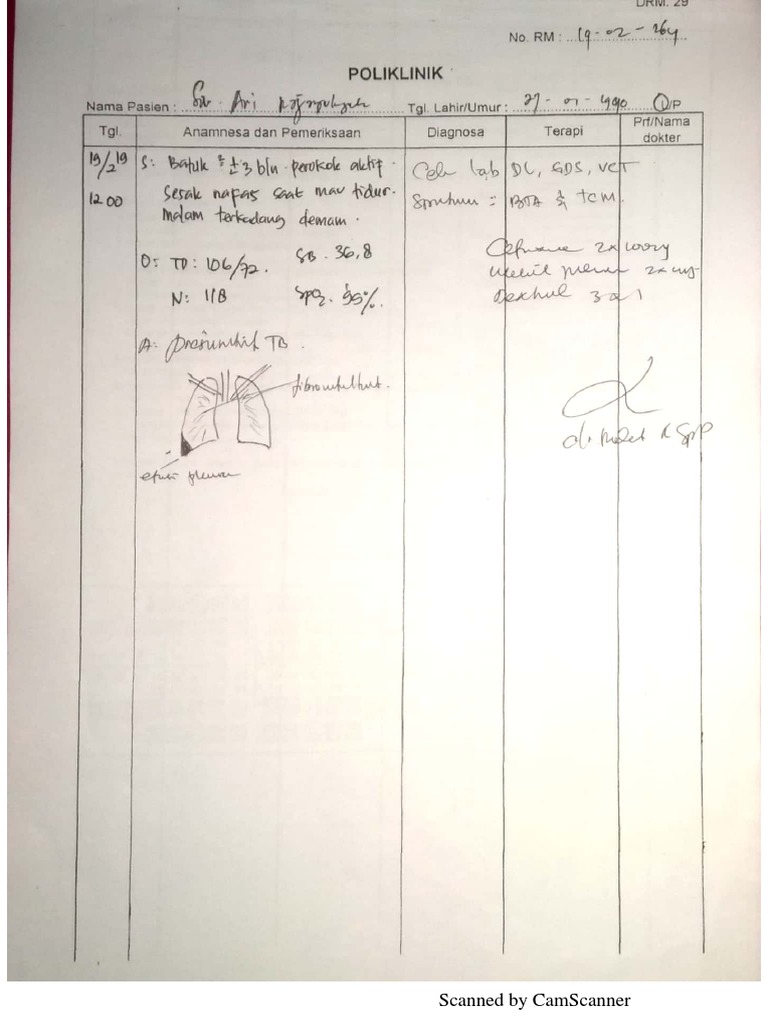 DRM. 29
No. RM : 19-02-264
POLIKLINIK
Nama Pasien : Sdr. Ari Tgl. Lahir/Umur : 27-01-1990 L/P
Tgl. Anamnesa dan Pemeriksaan Diagnosa Terapi Prf/Nama dokter
19/2 19 S: Batuk ± 3 bln. perokok aktif. Cek lab DL, GDS, VCT
12 00 Sesak napas saat mau tidur. Sputum : BTA & TCM.
Malam terkadang demam.
O: TD: 106/72. SB. 36,8 2x100mg
N: 118 SpO2. 99%. 2x
3x1
A: Presumtif TB.
fibroinfiltrat.
efusi pleura
dr. SpP
Scanned by CamScanner